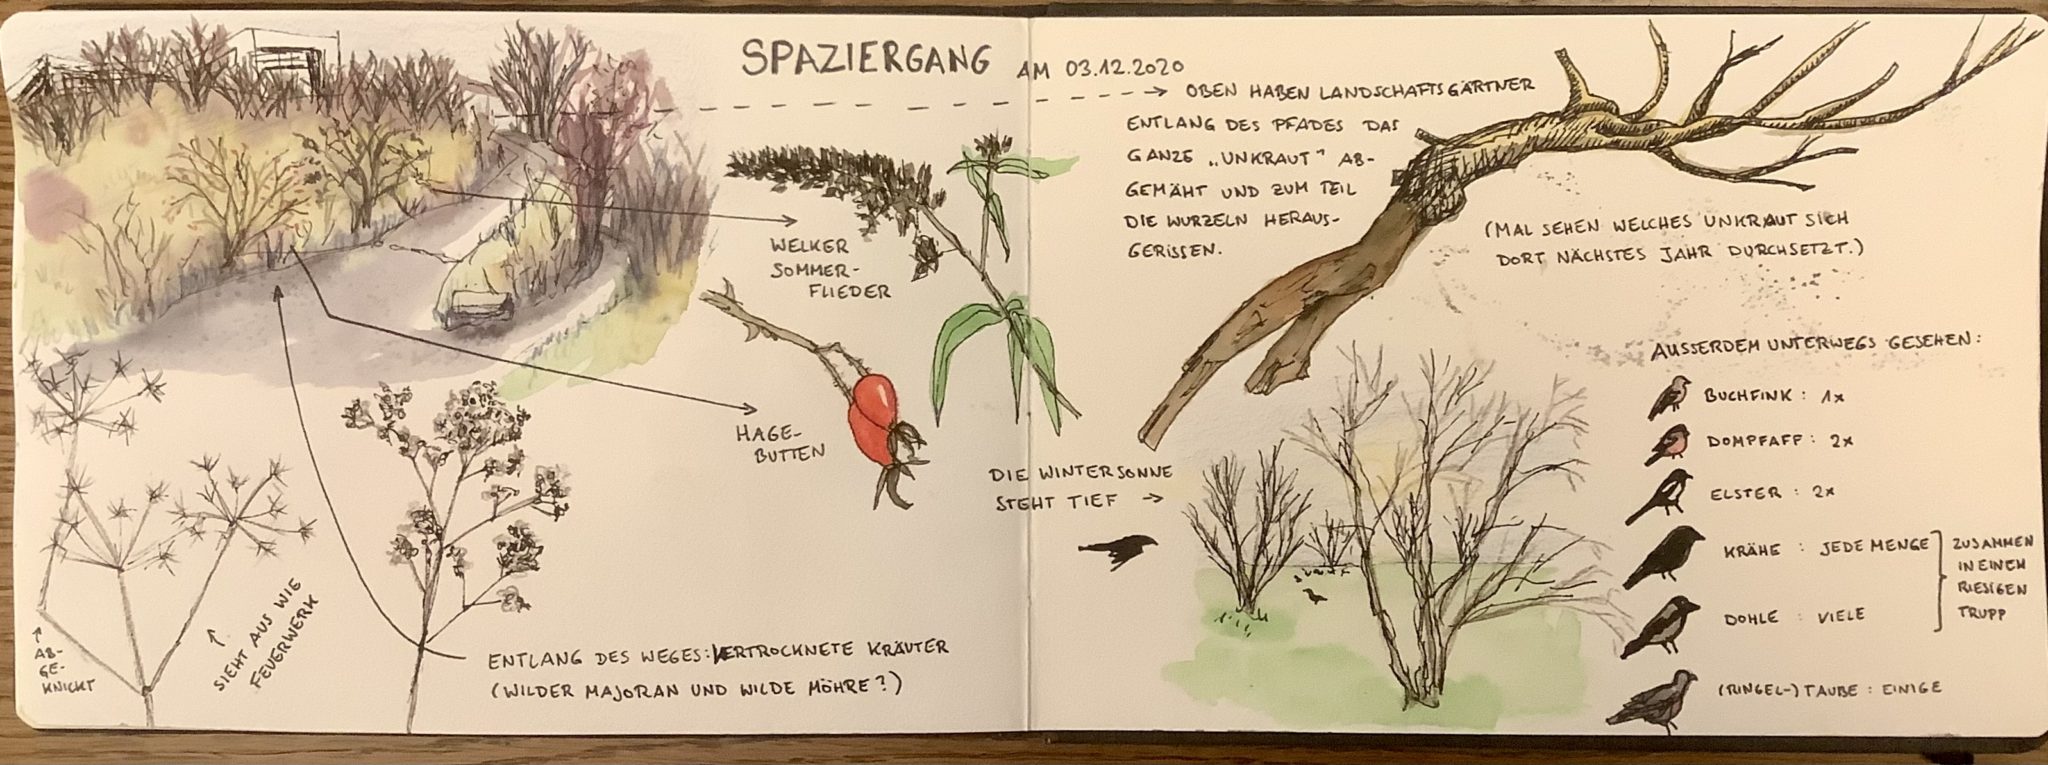 SPAZIERGANG AM 03.12.2020
OBEN HABEN LANDSCHAFTSGÄRTNER
ENTLANG DES PFADES DAS
GANZE „UNKRAUT" AB-
GEMÄHT UND ZUM TEIL
DIE WURZELN HERAUS-
GERISSEN.
(MAL SEHEN WELCHES UNKRAUT SICH
DORT NÄCHSTES JAHR DURCHSETZT.)
WELKER
SOMMER-
FLIEDER
HAGE-
BUTTEN
AB-
GE-
KNICKT
SIEHT AUS WIE
FEUERWERK
ENTLANG DES WEGES: VERTROCKNETE KRÄUTER
(WILDER MAJORAN UND WILDE MÖHRE?)
DIE WINTERSONNE
STEHT TIEF
AUSSERDEM UNTERWEGS GESEHEN:
BUCHFINK : 1x
DOMPFAFF : 2x
ELSTER : 2x
KRÄHE : JEDE MENGE
DOHLE : VIELE
ZUSAMMEN
IN EINEM
RIESIGEN
TRUPP
(RINGEL-) TAUBE : EINIGE